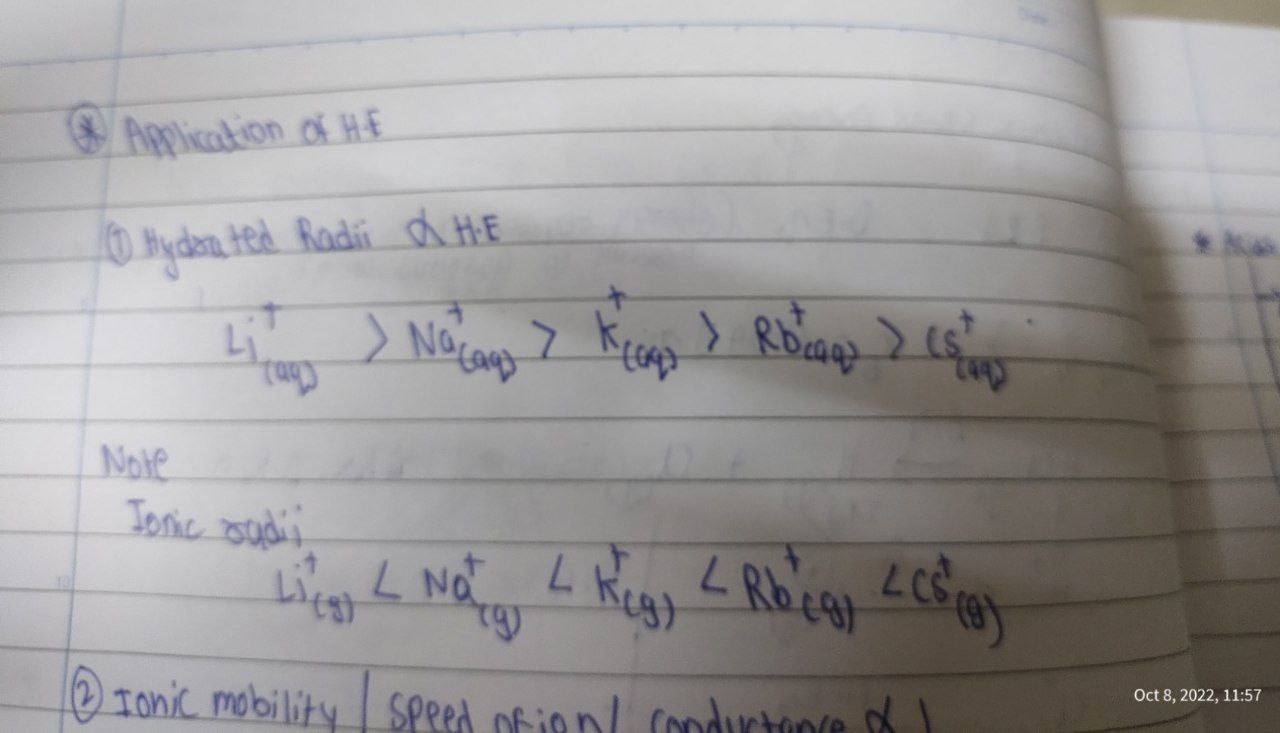 * Application of H.E
① Hydrated Radii ∝ H.E
Li⁺(aq) > Na⁺(aq) > K⁺(aq) > Rb⁺(aq) > Cs⁺(aq)
Note
Ionic radii
Li⁺(g) < Na⁺(g) < K⁺(g) < Rb⁺(g) < Cs⁺(g)
② Ionic mobility / speed of ion / conductance ∝ 1
Oct 8, 2022, 11:57